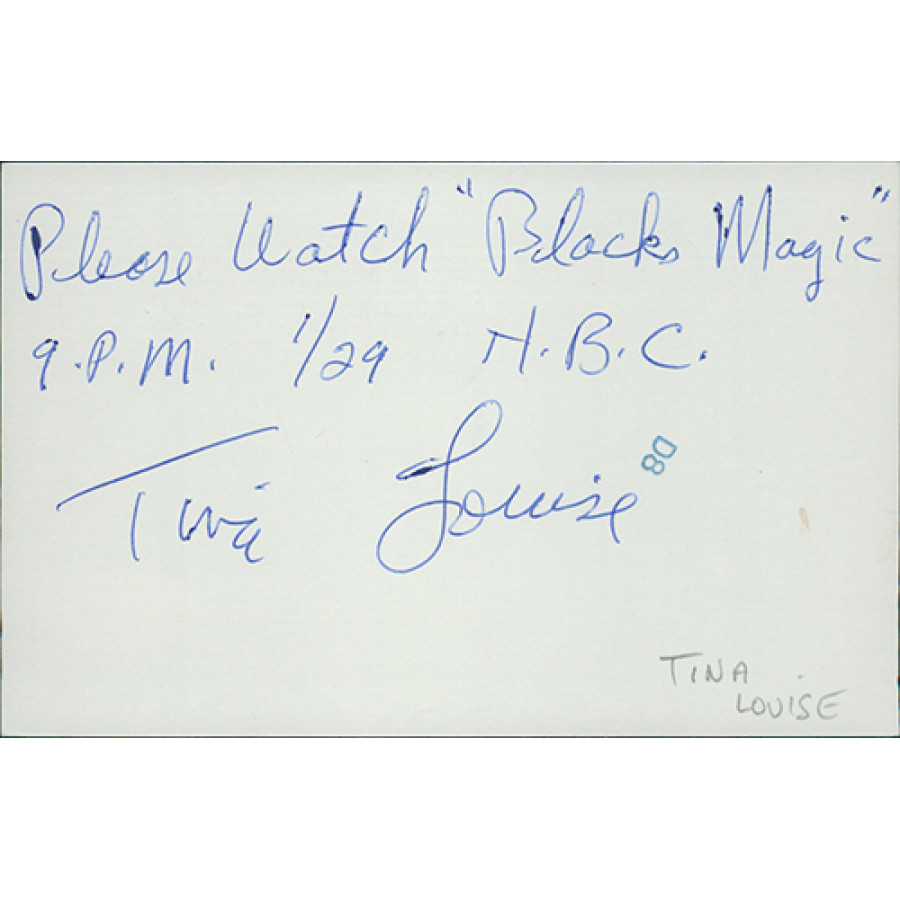 Please Watch "Blacks Magic"
9.P.M. 1/29 N.B.C.
Tina Louise
D8
TINA
LOUISE